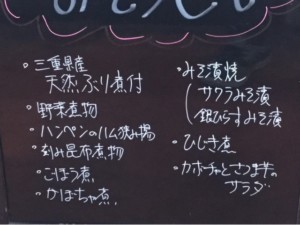 ・三重県産
天然ぶり煮付
・野菜煮物
・ハンペンのハム挟み揚
・刻み昆布煮物
・ごぼう煮
・かぼちゃ煮
・みそ漬焼
サワラみそ漬
銀ひらすみそ漬
・ひじき煮
・カボチャとさつま芋の
サラダ